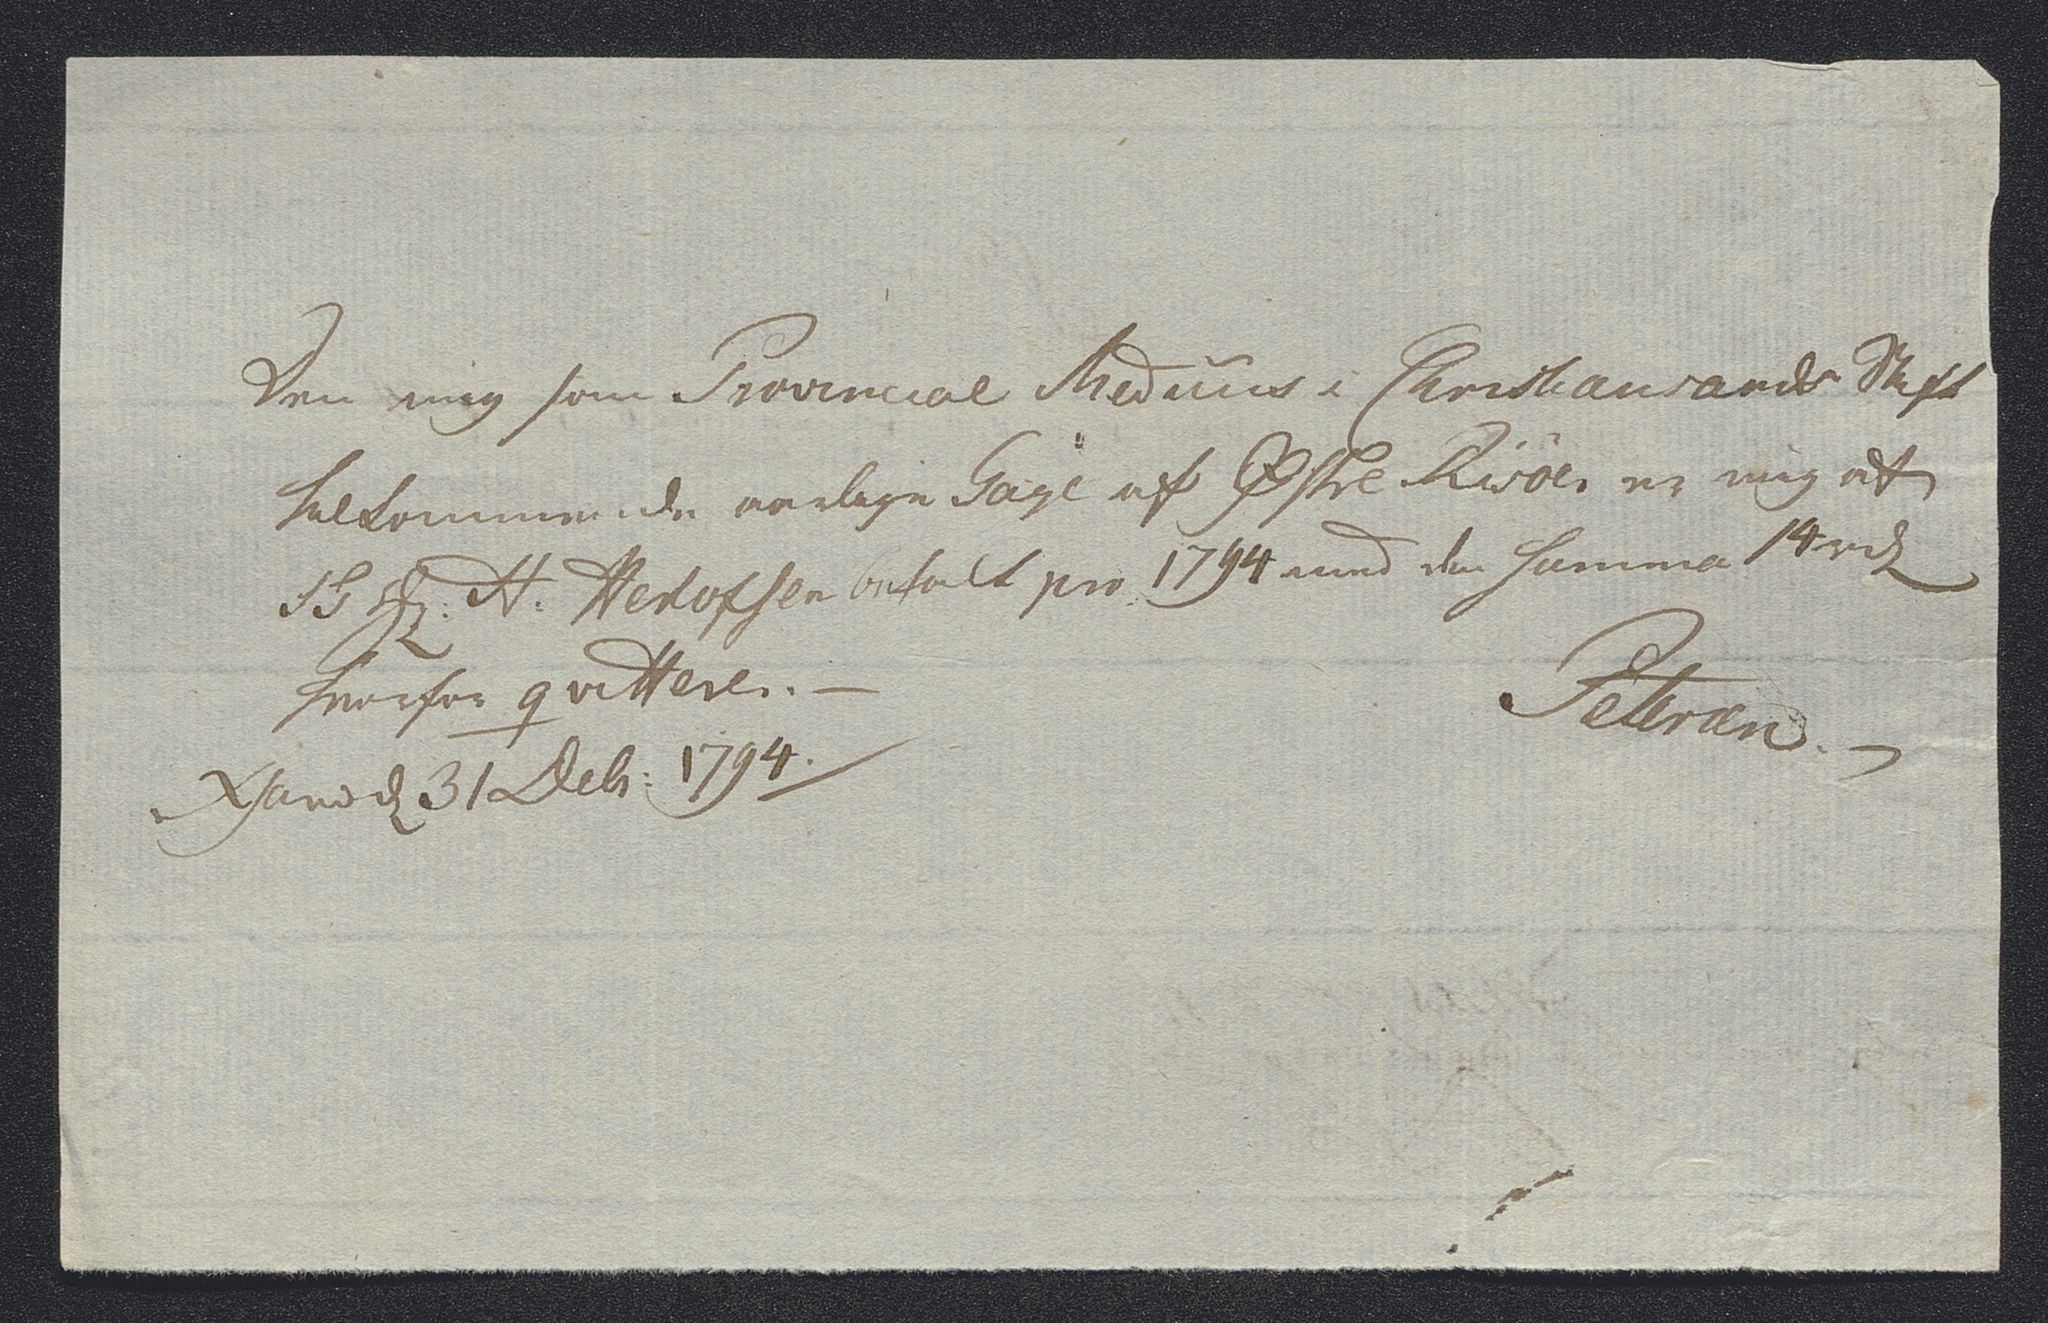 Den mig som Provincial Medicus i Christiansands Stift
tilkommende aarlige Gage af Østre Riisöer er mig af
H. Herlofsen betalt pro 1794 med den Summa 14 rd
hvorfor qvitterer. —
Xsand d 31 Decbr: 1794.
Petersen. —